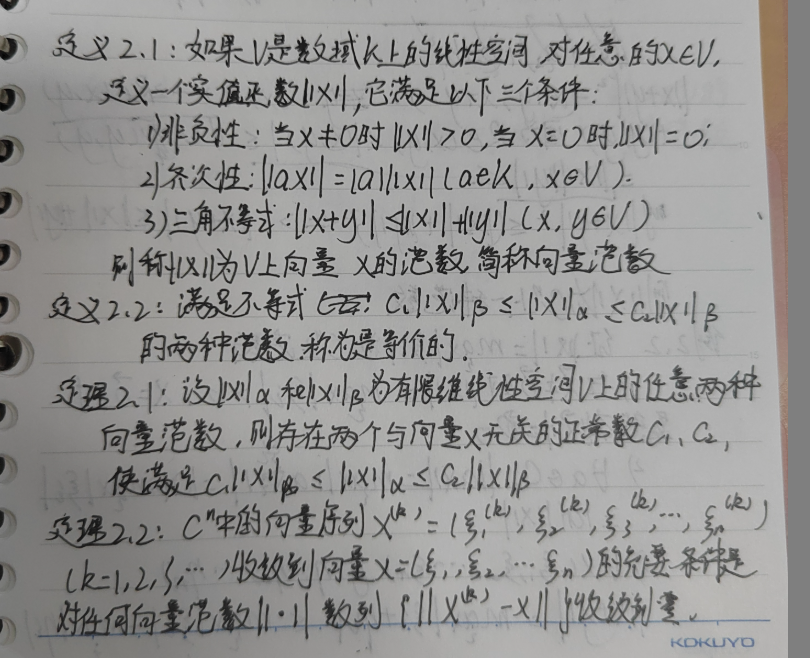 定义2.1：如果V是数域K上的线性空间 对任意的x∈V,
定义一个实值函数||x||，它满足以下三个条件：
1)非负性：当x≠0时||x||>0,当x=0时,||x||=0;
2)齐次性：||ax||=|a|||x||(a∈K，x∈V).
3)三角不等式：||x+y||≤||x||+||y||(x，y∈V)
则称||x||为V上向量 x的范数,简称向量范数
定义2.2：满足不等式 C₁||x||β≤||x||α≤C₂||x||β
的两种范数,称为是等价的.
定理2.1：设||x||α和||x||β为有限维线性空间V上的任意两种
向量范数，则存在两个与向量x无关的正常数C₁、C₂，
使满足C₁||x||β≤||x||α≤C₂||x||β
定理2.2：Cⁿ中的向量序列x⁽ᵏ⁾=(ξ₁⁽ᵏ⁾,ξ₂⁽ᵏ⁾,ξ₃⁽ᵏ⁾,…,ξₙ⁽ᵏ⁾)
(k=1,2,3,…)收敛到向量x=(ξ₁,ξ₂,…ξₙ)的充要条件是
对任何向量范数||·|| 数列{||x⁽ᵏ⁾-x||}收敛到零.
KOKUYO